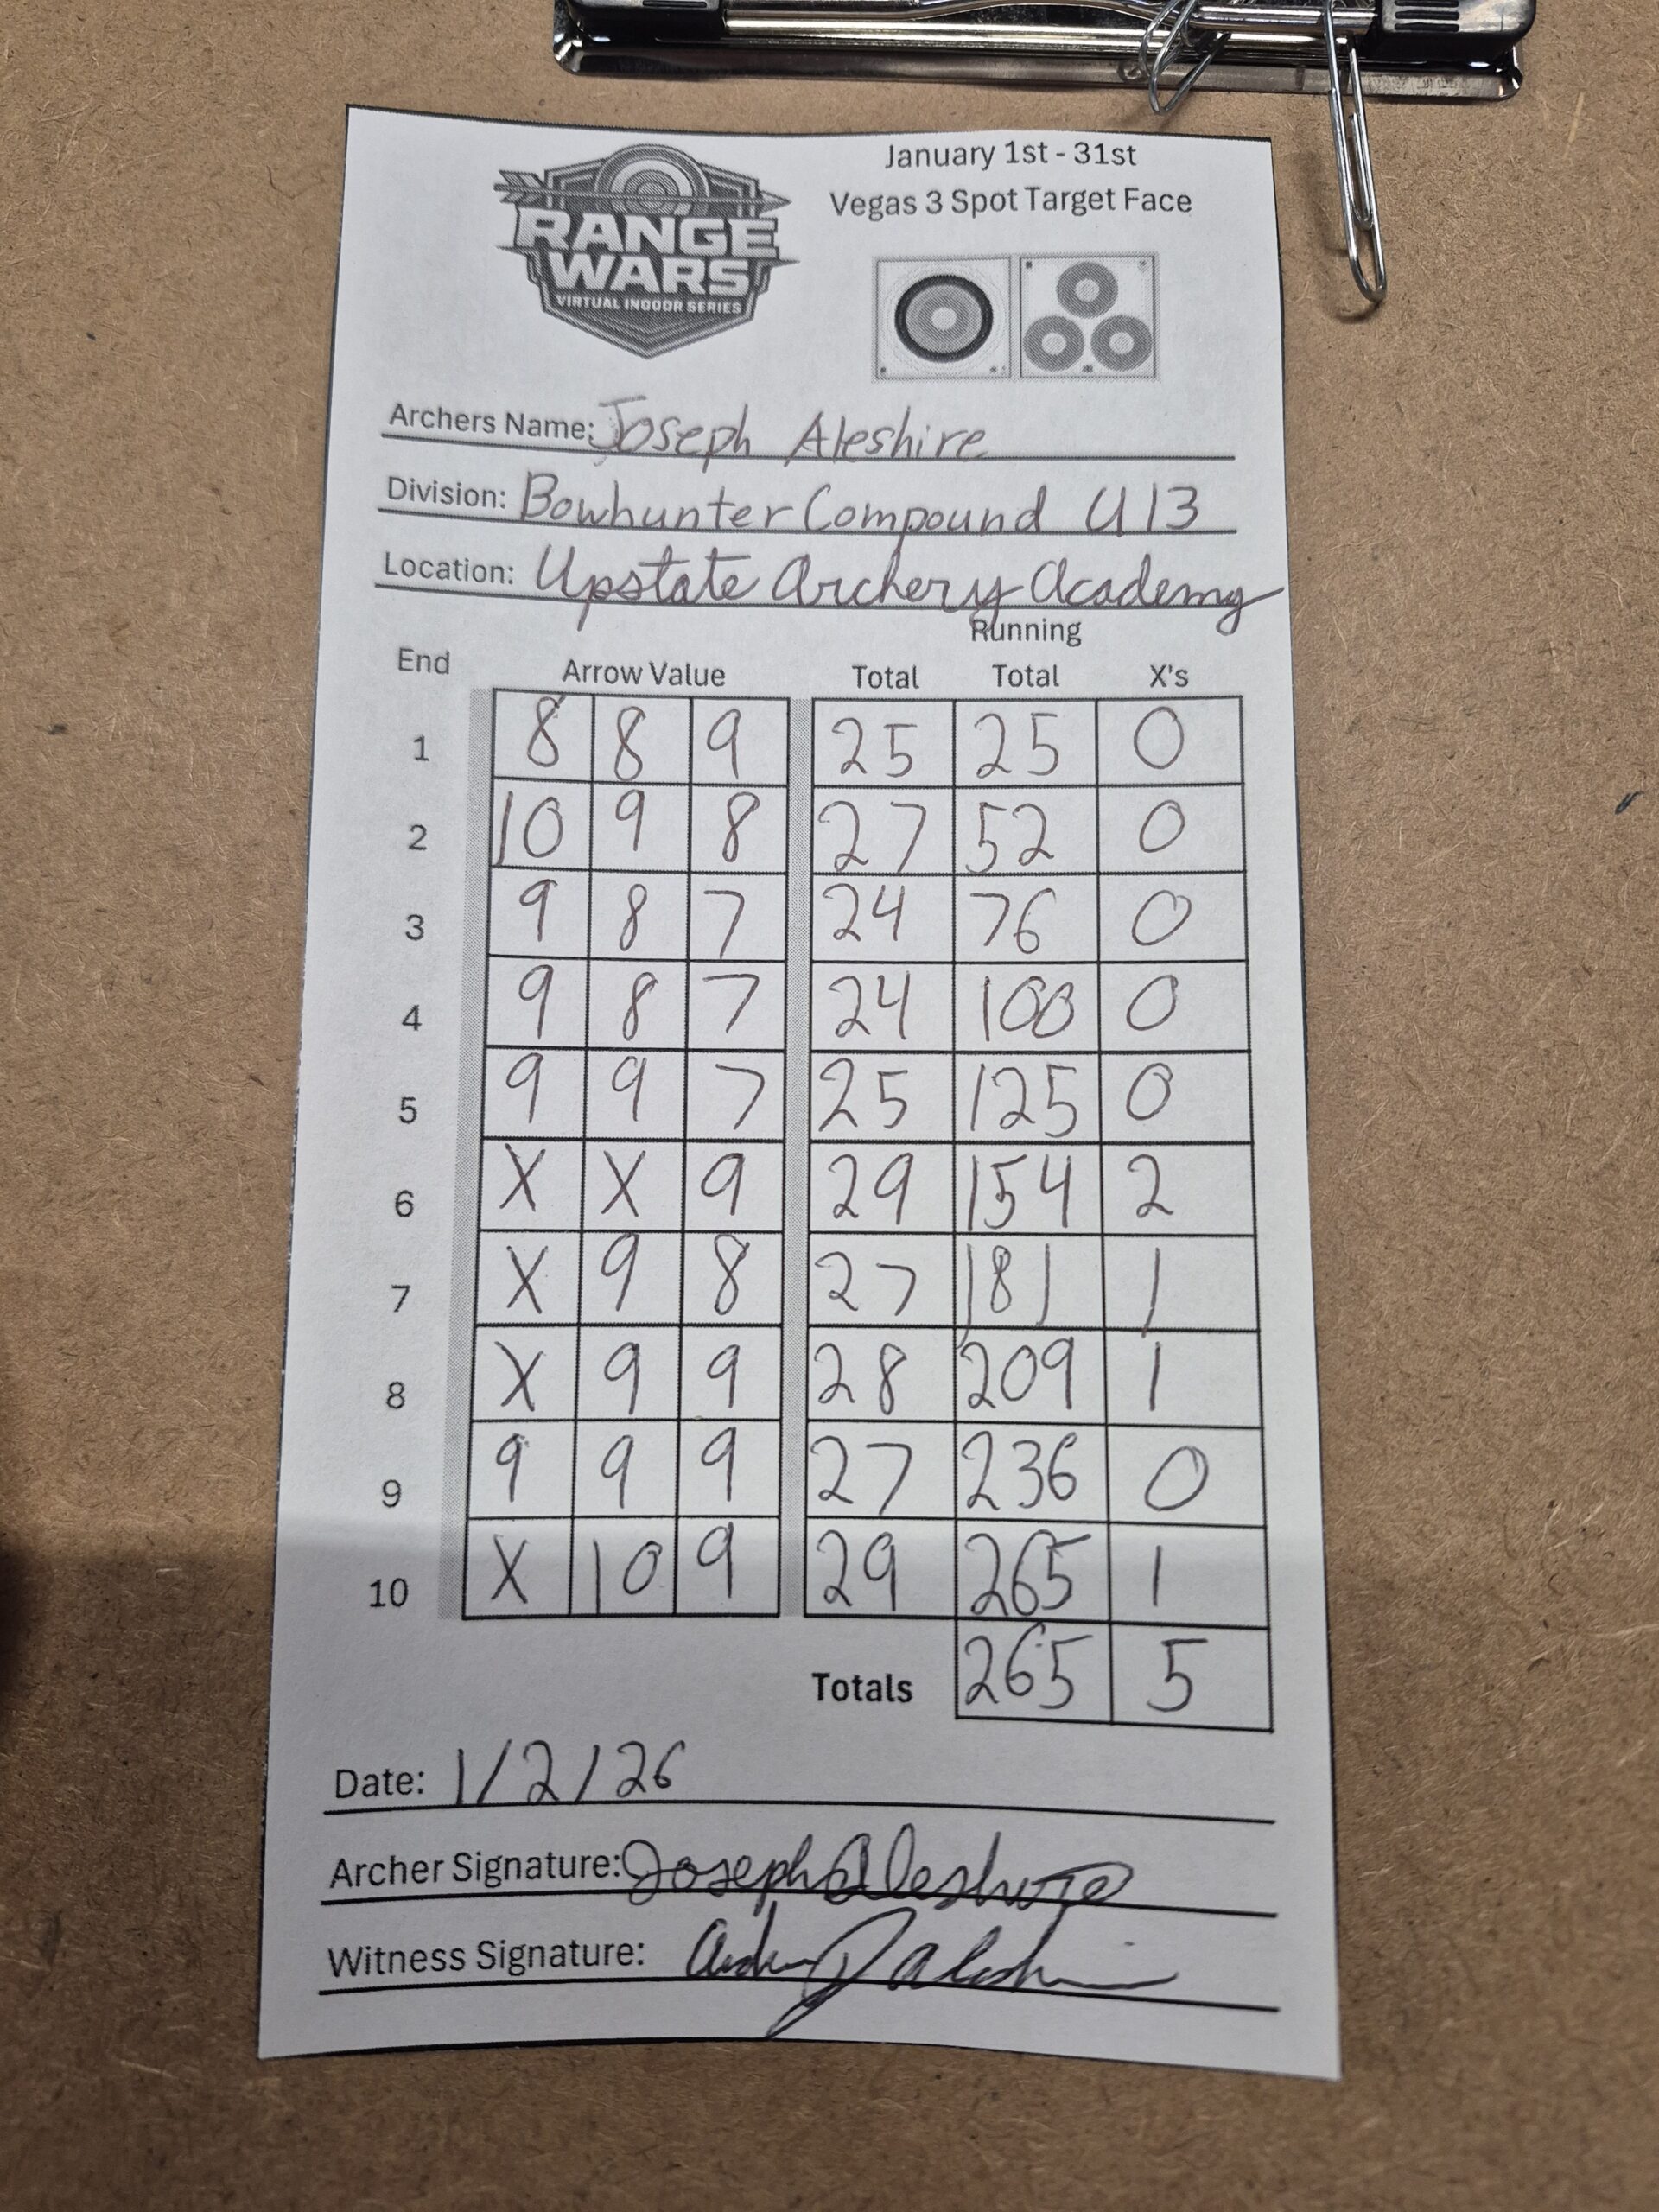 January 1st - 31st
Vegas 3 Spot Target Face
RANGE
WARS
VIRTUAL INDOOR SERIES
Archers Name: Joseph Aleshire
Division: Bowhunter Compound U13
Location: Upstate Archery Academy
End Arrow Value Total Running Total X's
1 8 8 9 25 25 0
2 10 9 8 27 52 0
3 9 8 7 24 76 0
4 9 8 7 24 100 0
5 9 9 7 25 125 0
6 X X 9 29 154 2
7 X 9 8 27 181 1
8 X 9 9 28 209 1
9 9 9 9 27 236 0
10 X 10 9 29 265 1
Totals 265 5
Date: 1/2/26
Archer Signature: Joseph Aleshire
Witness Signature: